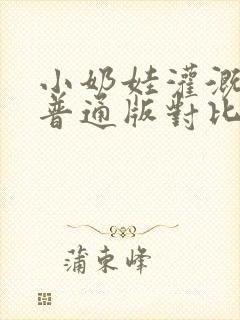 小奶娃灌溉
普通版對比
蒲東峰